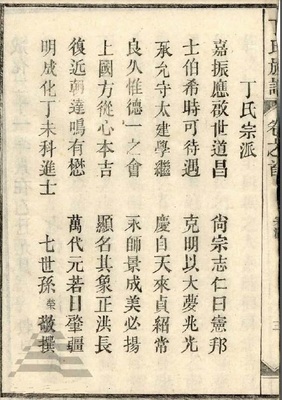 丁氏族譜 卷之首
丁氏宗派
嘉振應啟世道昌 尙宗志仁日憲邦
士伯希時可待遇 克明以大夢兆光
承允守太建學繼 慶自天來貞紹常
良久惟德一之會 永師景成美必揚
上國方從心本吉 顯名其象正洪長
復近朝達鳴有懋 萬代元若日肇疆
明成化丁未科進士 七世孫榮敬撰